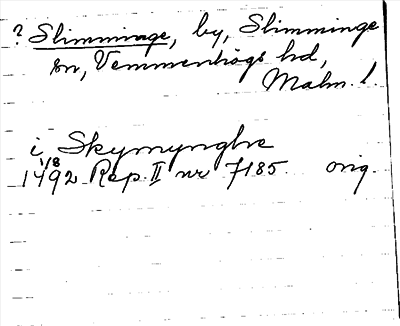 ? Slimminge, by, Slimminge
sn, Vemmenhögs hd,
Malm. l.
i Skymynghe
1/8
1492 Rep. II nr 7185 orig.